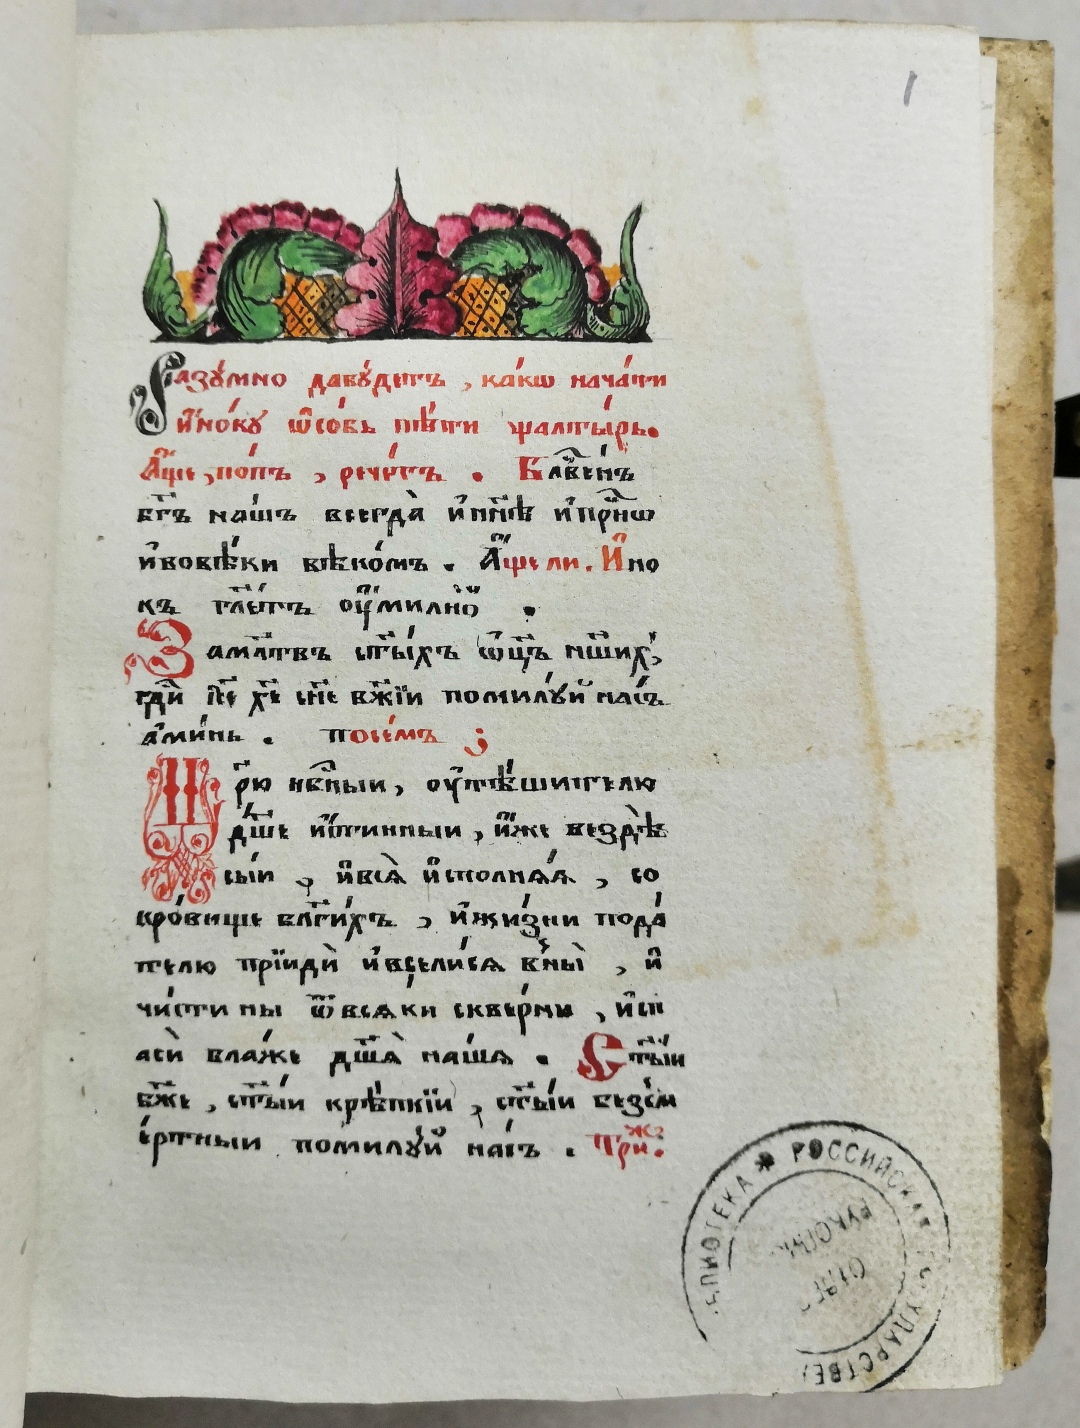 1
Разꙋмно да бꙋдетъ, ка́кѡ нача́ти
и҆но́кꙋ ѡ҆со́бь пѣ́ти ѱалты́рь.
А҆́ще, по́пъ, рече́тъ. Бл҃ве́нъ
бг҃ъ на́шъ всегда̀ и҆ нн҃ѣ и҆ прⷭ҇нѡ
и҆ во вѣ́ки вѣко́мъ. А҆́ще ли. И҆но
къ гл҃етъ ᲂу҆ми́лнѡ.
За мл҃твъ ст҃ы́хъ ѡ҆ц҃ъ нш҃и́хъ,
гдⷭ҇и і҆с҃е хрⷭ҇те сн҃е бж҃їи поми́лꙋй на́съ
а҆ми́нь. посе́мъ ;
Цр҃ю нбⷭ҇ныи, ᲂу҆тѣ́шителю
дш҃е и҆́стинныи, и҆́же вездѣ̀
сы́и, и҆ всѧ̀ и҆сполнѧ́ѧ, со
кро́вище бл҃ги́хъ, и҆ жи́зни пода́
телю прїидѝ и҆ всели́сѧ в ны̀, и҆
чи́сти ны ѿ всѧ́ки скве́рны, и҆ сп
асѝ бла́же дш҃а̀ на́шѧ. Ст҃ы́и
бж҃е, ст҃ы́и крѣ́пкїи, ст҃ы́и безсм
е́ртныи поми́лꙋй на́съ. Три́ж.
РОССИЙСКАЯ ГОСУДАРСТВЕННАЯ БИБЛИОТЕКА
ОТДЕЛ
РУКОПИСЕЙ